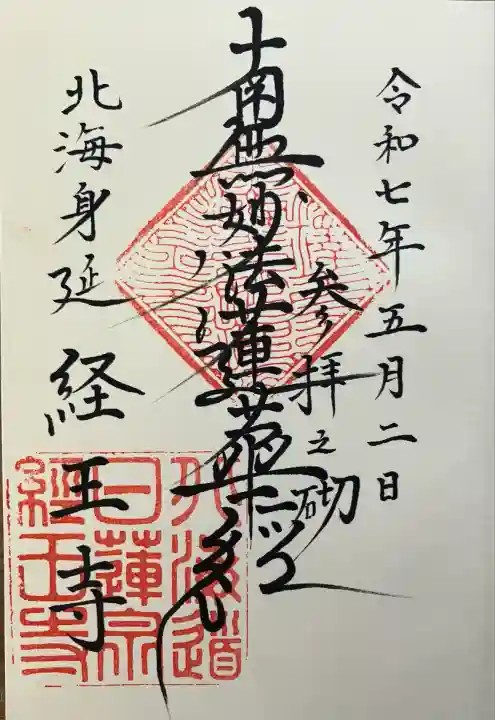 令和七年五月二日
参拝之砌
南無妙法蓮華経
北海身延 経王寺
北海道
日蓮宗
經王寺